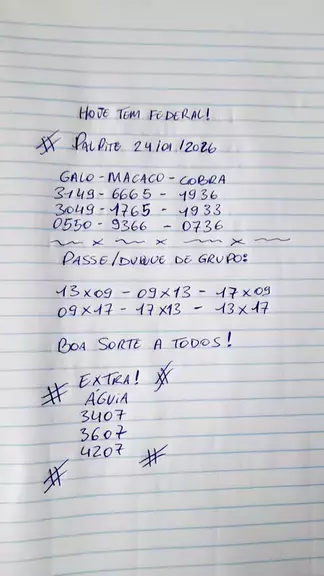 HOJE TEM FEDERAL!
# PALPITE 24/01/2026
GALO - MACACO - COBRA
3149 - 6665 - 1936
3049 - 1765 - 1933
0550 - 9366 - 0736
~~ x ~~ x ~~ x ~~
PASSE/DUQUE DE GRUPO:
13x09 - 09x13 - 17x09
09x17 - 17x13 - 13x17
BOA SORTE A TODOS!
# EXTRA! #
ÁGUIA
3407
3607
4207 #
#